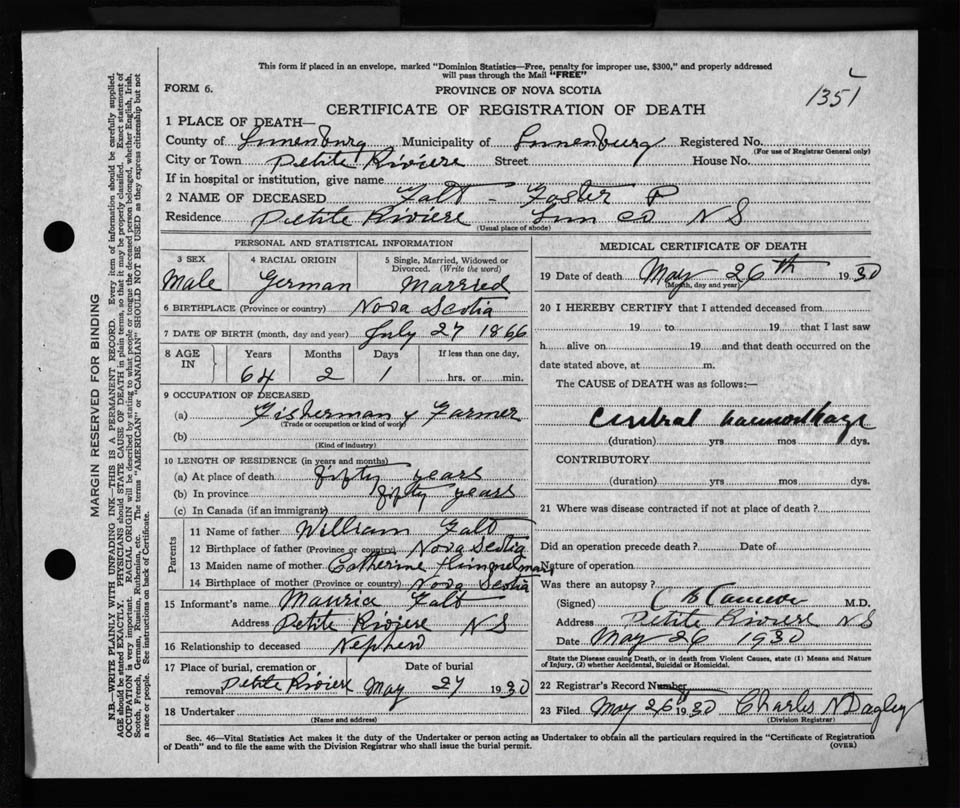 This form if placed in an envelope, marked "Dominion Statistics—Free, penalty for improper use, $300," and properly addressed
will pass through the Mail "FREE"
FORM 6.
PROVINCE OF NOVA SCOTIA
1351
CERTIFICATE OF REGISTRATION OF DEATH
1 PLACE OF DEATH—
County of Lunenburg Municipality of Lunenburg Registered No.
(For use of Registrar General only)
City or Town Petite Riviere Street House No.
If in hospital or institution, give name
2 NAME OF DECEASED Falt - Foster P
Residence Petite Riviere Lun Co N S
(Usual place of abode)
PERSONAL AND STATISTICAL INFORMATION
3 SEX 4 RACIAL ORIGIN 5 Single, Married, Widowed or
Divorced. (Write the word)
Male German Married
6 BIRTHPLACE (Province or country) Nova Scotia
7 DATE OF BIRTH (month, day and year) July 27 1866
8 AGE IN Years Months Days If less than one day,
64 2 1 hrs. or min.
9 OCCUPATION OF DECEASED
(a) Fisherman & Farmer
(Trade or occupation or kind of work)
(b)
(Kind of industry)
10 LENGTH OF RESIDENCE (in years and months)
(a) At place of death fifty years
(b) In province fifty years
(c) In Canada (if an immigrant)
Parents
11 Name of father William Falt
12 Birthplace of father (Province or country) Nova Scotia
13 Maiden name of mother Catherine Himmelman
14 Birthplace of mother (Province or country) Nova Scotia
15 Informant's name Maurice Falt
Address Petite Riviere N S
16 Relationship to deceased Nephew
17 Place of burial, cremation or Date of burial
removal Petite Riviere May 27 1930
18 Undertaker
(Name and address)
MEDICAL CERTIFICATE OF DEATH
19 Date of death May 26th 1930
(Month, day and year)
20 I HEREBY CERTIFY that I attended deceased from
19 to 19 that I last saw
h alive on 19 and that death occurred on the
date stated above, at m.
The CAUSE of DEATH was as follows:
Cerebral haemorrhage
(duration) yrs mos dys.
CONTRIBUTORY
(duration) yrs. mos. dys.
21 Where was disease contracted if not at place of death ?
Did an operation precede death ? Date of
Nature of operation
Was there an autopsy ?
(Signed) M.D.
Address Petite Riviere N S
Date May 26 1930
State the Disease causing Death, or in death from Violent Causes, state (1) Means and Nature
of Injury, (2) whether Accidental, Suicidal or Homicidal.
22 Registrar's Record Number
23 Filed May 26th 1930 Charles N Dagley
(Division Registrar)
Sec. 46—Vital Statistics Act makes it the duty of the Undertaker or person acting as Undertaker to obtain all the particulars required in the "Certificate of Registration
of Death" and to file the same with the Division Registrar who shall issue the burial permit.
(OVER)
MARGIN RESERVED FOR BINDING
N.B.—WRITE PLAINLY WITH UNFADING INK—THIS IS A PERMANENT RECORD. Every item of information should be carefully supplied.
AGE should be stated EXACTLY. PHYSICIANS should STATE CAUSE OF DEATH in plain terms, so that it may be properly classified. Exact statement of
OCCUPATION is very important. RACIAL ORIGIN will be described by stating to what people or tongue the deceased person belonged, whether English, Irish,
Scotch, French, German, Russian, Ruthenian, etc. The terms "AMERICAN" or "CANADIAN" SHOULD NOT BE USED as they express citizenship but not
a race or people. See instructions on back of Certificate.